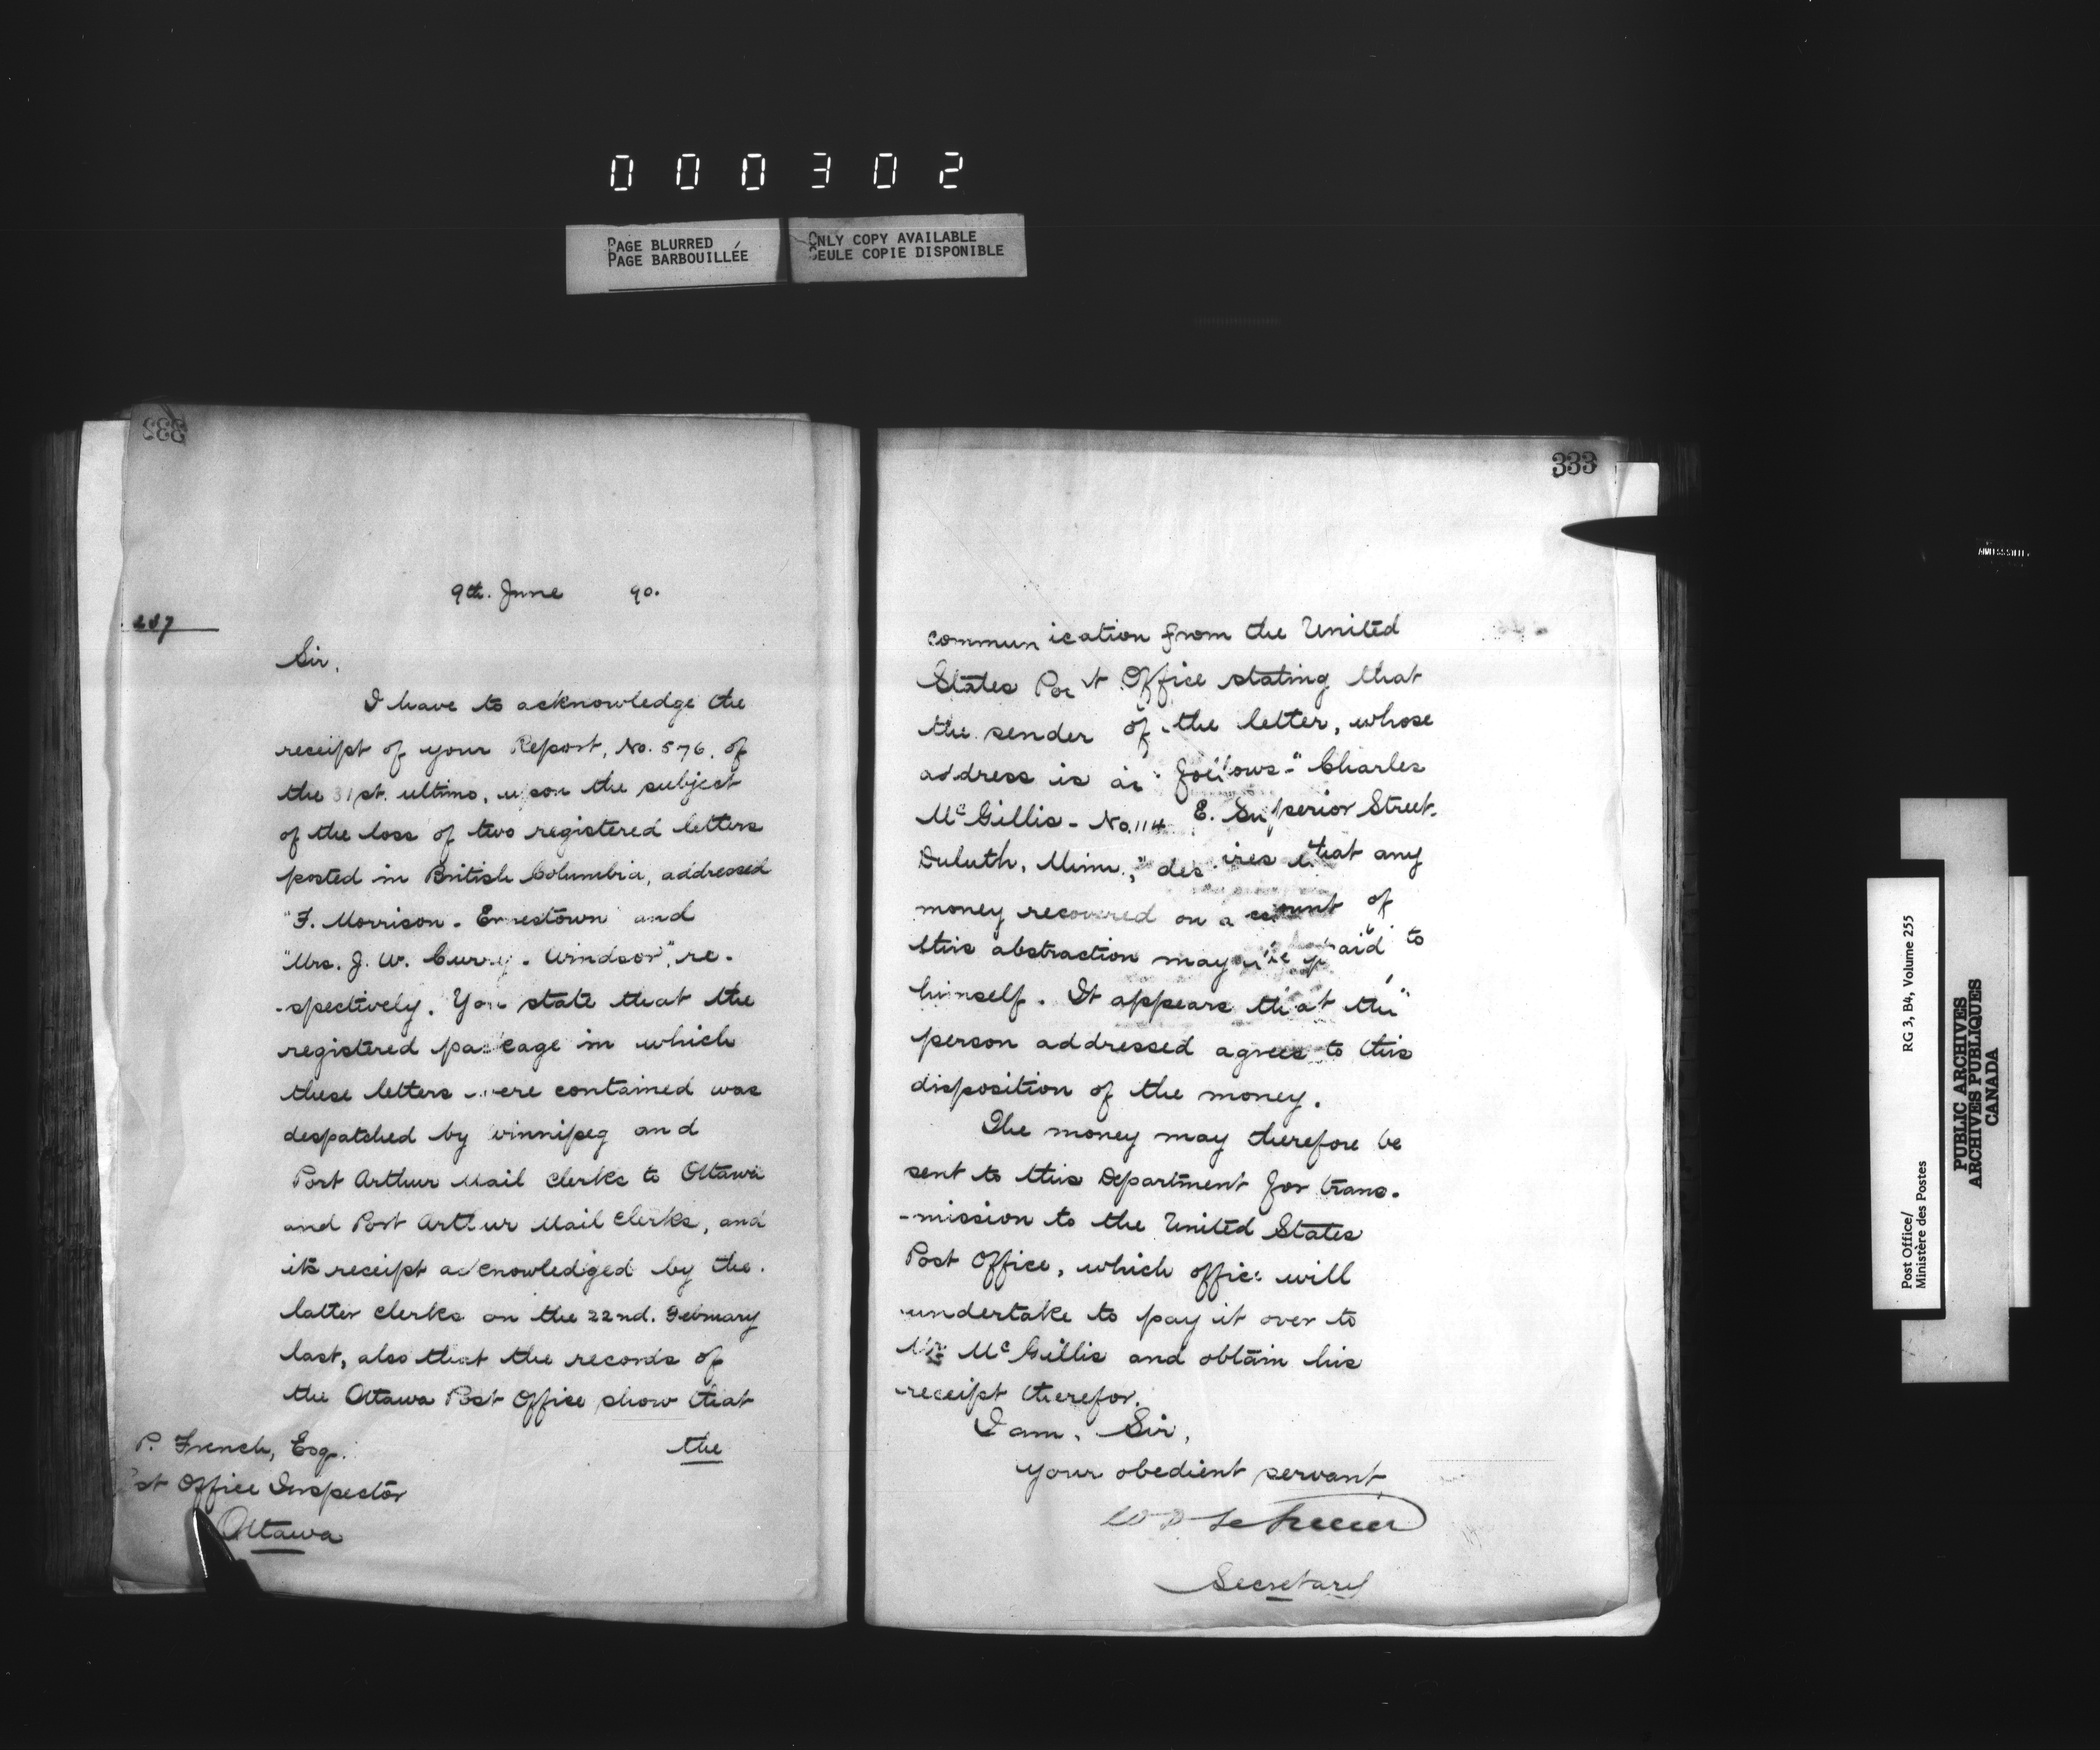 000302
PAGE BLURRED
PAGE BARBOUILLÉE
ONLY COPY AVAILABLE
SEULE COPIE DISPONIBLE
332
9th. June 90.
237
Sir,
I have to acknowledge the
receipt of your Report, No. 576, of
the 31st. ultimo, upon the subject
of the loss of two registered letters
posted in British Columbia, addressed
"F. Morrison - Ernestown" and
"Mrs. J. W. Curry - Windsor", re-
-spectively. You state that the
registered package in which
these letters were contained was
despatched by Winnipeg and
Port Arthur Mail Clerks to Ottawa
and Port Arthur Mail Clerks, and
its receipt acknowledged by the
latter clerks on the 22nd. February
last, also that the records of
the Ottawa Post Office show that
the
P. French, Esq.
Post Office Inspector
Ottawa
333
communication from the United
States Post Office stating that
the sender of the letter, whose
address is as follows - "Charles
McGillis - No. 114 E. Superior Street,
Duluth, Minn.," desires that any
money recovered on account of
this abstraction may be paid to
himself. It appears that the
person addressed agrees to this
disposition of the money.
The money may therefore be
sent to this Department for trans-
-mission to the United States
Post Office, which office will
undertake to pay it over to
Mr. McGillis and obtain his
receipt therefor.
I am, Sir,
Your obedient servant
Secretary
Post Office/
Ministère des Postes
RG 3, B4, Volume 255
PUBLIC ARCHIVES
ARCHIVES PUBLIQUES
CANADA